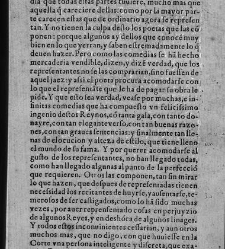 dia que todas estas partes tuuiere, mucho mas que
aquella q̃ careciere dellas: como por la mayor par-
te carecen estas que de ordinario agora se represen
tan. Y no tienen la culpa desto los poetas que las cõ
ponen: porque algunos ay dellos que conocē muy
bien en lo que yerran, y saben estremadamente lo q̃
deuen hazer. Pero como las comedias se hã hecho
mercaderia vendible, dizen, y dizē verdad, que los
representantes no se las comprarian, sino fuessen de
aquel jaez: y assi el poeta procura acomodarse con
lo que el representãte que le ha de pagar su obra le
pide. Y que esto sea verdad, vease por muchas, e in-
finitas comedias que ha compuesto vn felicissimo
ingenio destos Reynos, cõ tanta gala, con tanto do-
nayre, con tan elegante verso, con tan buenas razo-
nes, con tan graues sentencias: y finalmente tan lle-
nas de elocucion y alteza de estilo, que tiene lleno
el mundo de su fama. Y por querer acomodarse al
gusto de los representantes, no han llegado todas,
como han llegado algunas al punto de la perfecciõ
que requieren. Otros las componen, tan sin mirar
lo que hazen, que despues de representadas tienen
necessidad los recitantes de huyrse, y ausentarse, te-
merosos de ser castigados, como lo hã sido muchas
vezes, por auer representado cosas en perjuyzio
de algunos Reyes, y en deshõra de algunos linages.
Y todos estos inconuenientes cessarian, y aun otros
muchos mas, que no digo, con que huuiesse en la
Corte vna persona inteligente y discreta, que exa